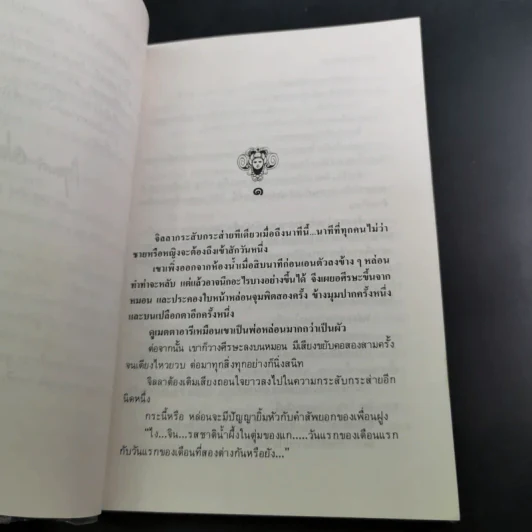 ๑
จิลลากระสับกระส่ายทีเดียวเมื่อถึงนาทีนี้...นาทีที่ทุกคนไม่ว่า
ชายหรือหญิงจะต้องถึงเข้าสักวันหนึ่ง
เขาเพิ่งออกจากห้องน้ำเมื่อสิบนาทีก่อนเอนตัวลงข้าง ๆ หล่อน
ทำท่าจะหลับ แต่แล้วอาจนึกอะไรบางอย่างขึ้นได้ จึงเผยอศีรษะขึ้นจาก
หมอน และประคองใบหน้าหล่อนจุมพิตสองครั้ง ข้างมุมปากครั้งหนึ่ง
และบนเปลือกตาอีกครั้งหนึ่ง
ดูเมตตาอารีเหมือนเขาเป็นพ่อหล่อนมากกว่าเป็นผัว
ต่อจากนั้น เขาก็วางศีรษะลงบนหมอน มีเสียงขยับคอสองสามครั้ง
จนเตียงไหวยวบ ต่อมาทุกสิ่งทุกอย่างก็นิ่งสนิท
จิลลาต้องเติมเสียงถอนใจยาวลงไปในความกระสับกระส่ายอีก
นิดหนึ่ง
กระนี้หรือ หล่อนจะมีปัญญายิ้มหัวกับคำสัพยอกของเพื่อนฝูง
"ไง...จิน...รสชาติน้ำผึ้งในตุ่มของแก.....วันแรกของเดือนแรก
กับวันแรกของเดือนที่สองต่างกันหรือยัง..."